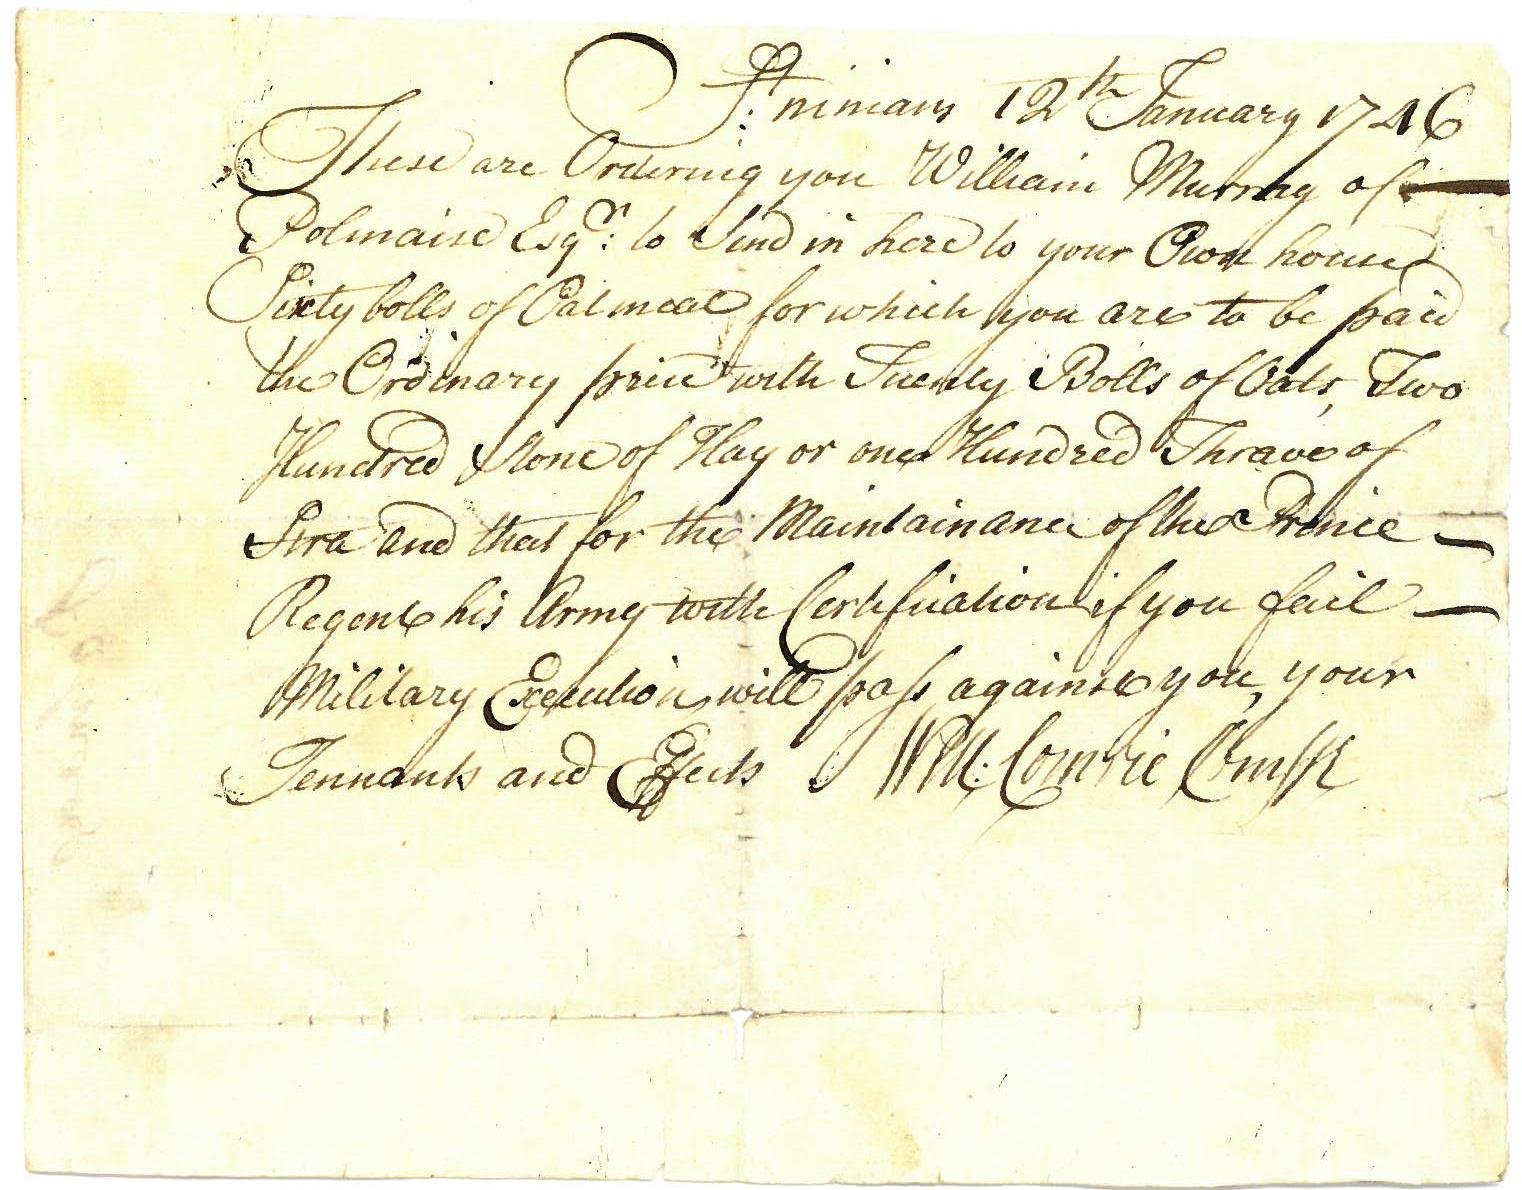 St: ninians 12th January 1746
These are Ordering you William Murray of
Polmaise Esqr: to Send in here to your Own house
Sixty bolls of Oatmeal for which you are to be paid
the Ordinary price with Tuenty Bolls of Oats, Two
Hundred Stone of Hay or one Hundred Thrave of
Stra and that for the Maintainance of the Prince
Regent his Army with Certification if you fail
Military Execution will pass against you, your
Tennants and Effects Will: Comrie